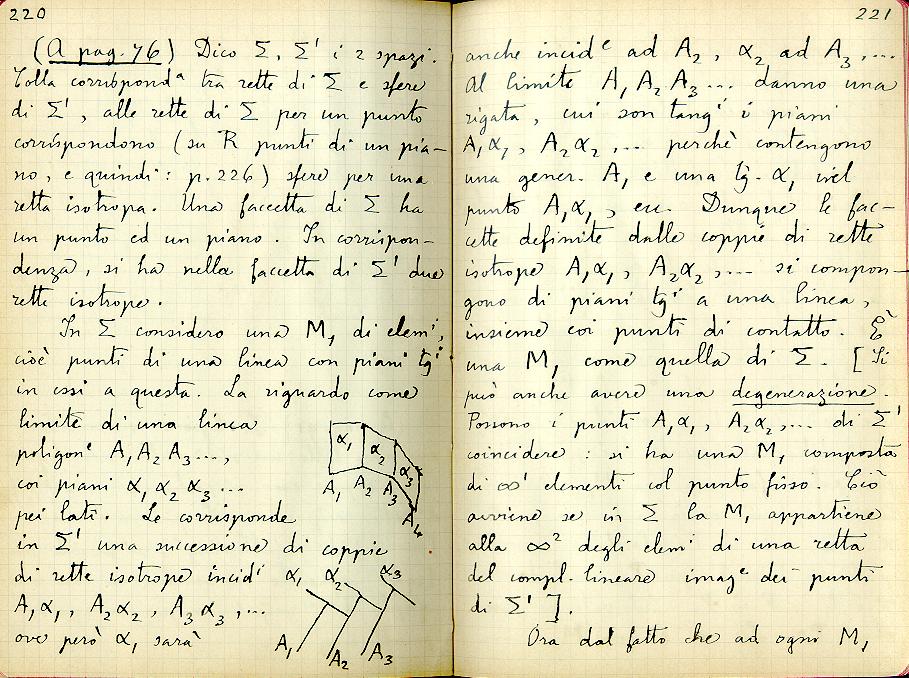 220
(A pag. 76) Dico Σ, Σ' i 2 spazi.
Colla corrispondª tra rette di Σ e sfere
di Σ', alle rette di Σ per un punto
corrispondono (su R punti di un pia-
no, e quindi: p. 226) sfere per una
retta isotropa. Una faccetta di Σ ha
un punto ed un piano. In corrispon-
denza, si ha nella faccetta di Σ' due
rette isotrope.
In Σ considero una M₁ di elemⁱ,
cioè punti di una linea con piani tgⁱ
in essi a questa. La riguardo come
limite di una linea
poligonᵉ A₁A₂A₃...,
coi piani α₁α₂α₃...
pei lati. Le corrisponde
in Σ' una successione di coppie
di rette isotrope incidⁱ
A₁α₁, A₂α₂, A₃α₃, ...
ove però α₁ sarà
α₁ α₂ α₃
A₁ A₂ A₃ A₄
α₁ α₂ α₃
A₁ A₂ A₃
221
anche incidᵉ ad A₂, α₂ ad A₃, ...
Al limite A₁A₂A₃... danno una
rigata, cui son tangⁱ i piani
A₁α₁, A₂α₂, ... perchè contengono
una gener. A₁ e una tg. α₁ nel
punto A₁α₁, ecc. Dunque le fac-
cette definite dalle coppie di rette
isotrope A₁α₁, A₂α₂, ... si compon-
gono di piani tgⁱ a una linea,
insieme coi punti di contatto. È
una M₁ come quella di Σ. [Si
può anche avere una degenerazione.
Possono i punti A₁α₁, A₂α₂, ... di Σ'
coincidere: si ha una M₁ composta
di ∞¹ elementi col punto fisso. Ciò
avviene se in Σ la M₁ appartiene
alla ∞² degli elemⁱ di una retta
del compl. lineare imagᵉ dei punti
di Σ'].
Ora dal fatto che ad ogni M₁